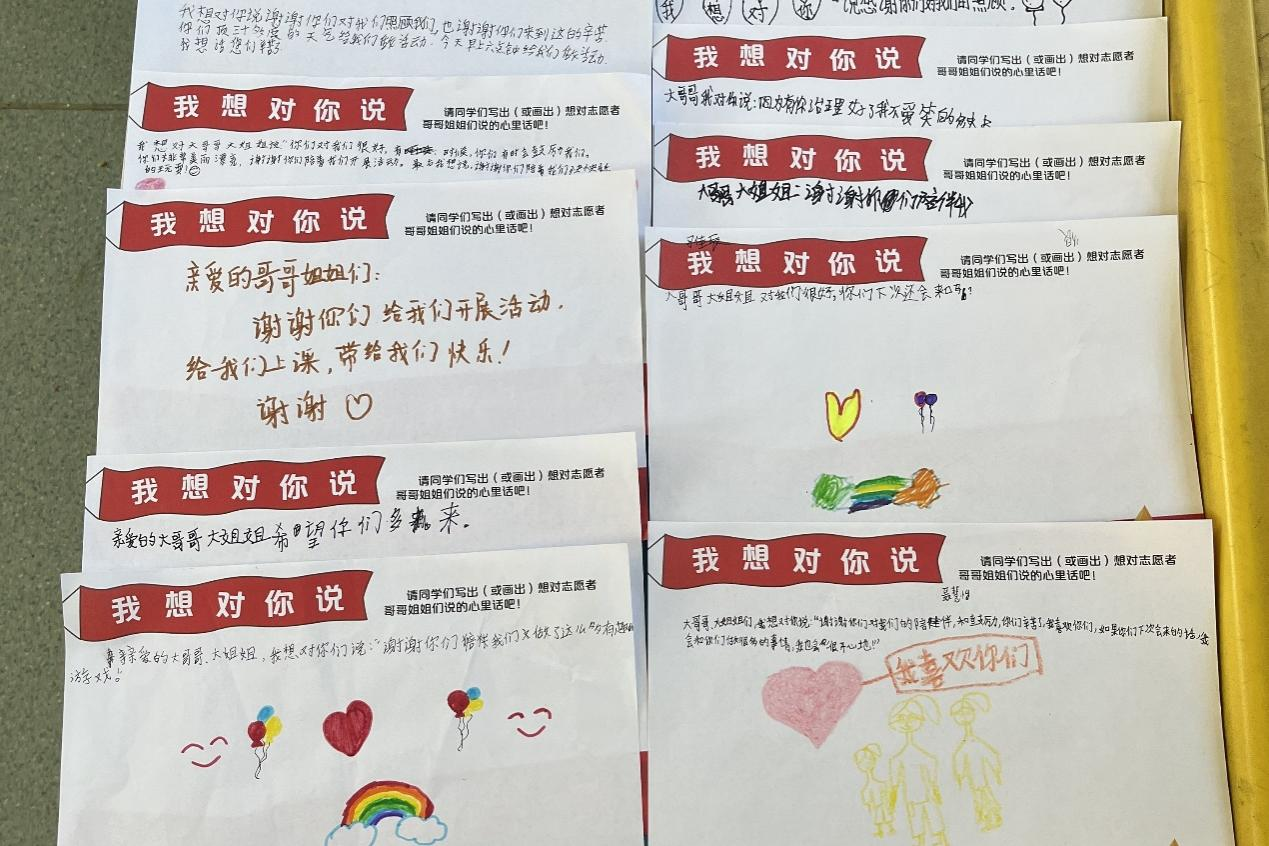 我想对你说谢谢你们对我们照顾我们,也谢谢你们来到这的辛苦
你们顶三十多度的天气给我们做活动.今天早上六点钟给我们做活动.
我想请您们
我想对你说
请同学们写出(或画出)想对志愿者
哥哥姐姐们说的心里话吧!
我想对大哥哥大姐姐说"你们对我们很好,有 时候,你们有时会鼓励我们。
你们非常美丽漂亮,谢谢你们陪着我们开展活动。最后我想说,谢谢你们陪着我们
我想对你说
请同学们写出(或画出)想对志愿者
哥哥姐姐们说的心里话吧!
亲爱的哥哥姐姐们:
谢谢你们给我们开展活动.
给我们上课,带给我们快乐!
谢谢
我想对你说
请同学们写出(或画出)想对志愿者
哥哥姐姐们说的心里话吧!
亲爱的大哥哥大姐姐希望你们多来。
我想对你说
请同学们写出(或画出)想对志愿者
哥哥姐姐们说的心里话吧!
亲爱的大哥哥、大姐姐,我想对你们说:"谢谢你们陪伴我们又做了这么多有趣的
游戏。
我想对你 说您谢谢你们对我们的照顾.
我想对你说
请同学们写出(或画出)想对志愿者
哥哥姐姐们说的心里话吧!
大哥哥我对你说:因为有你治理好了我不爱笑的缺点
我想对你说
请同学们写出(或画出)想对志愿者
哥哥姐姐们说的心里话吧!
大哥哥大姐姐:谢谢你们陪伴我
我想对你说
请同学们写出(或画出)想对志愿者
哥哥姐姐们说的心里话吧!
大哥哥大姐姐对我们很好,你们下次还会来吗?
我想对你说
请同学们写出(或画出)想对志愿者
哥哥姐姐们说的心里话吧!
大哥哥、大姐姐们,我想对你说:"谢谢你们对我们的陪伴,和鼓励,你们辛苦了,我喜欢你们,如果你们下次会来的话,我
会和你们做服务的事情,我也会"很开心地!"
我喜欢你们